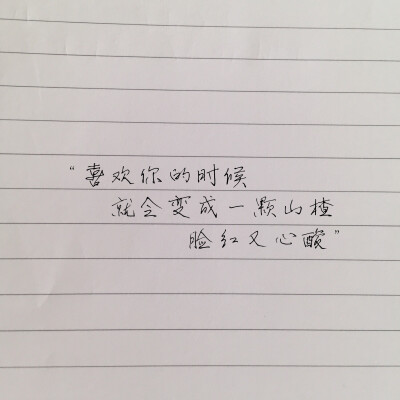 “喜欢你的时候
就会变成一颗山楂
脸红又心酸”